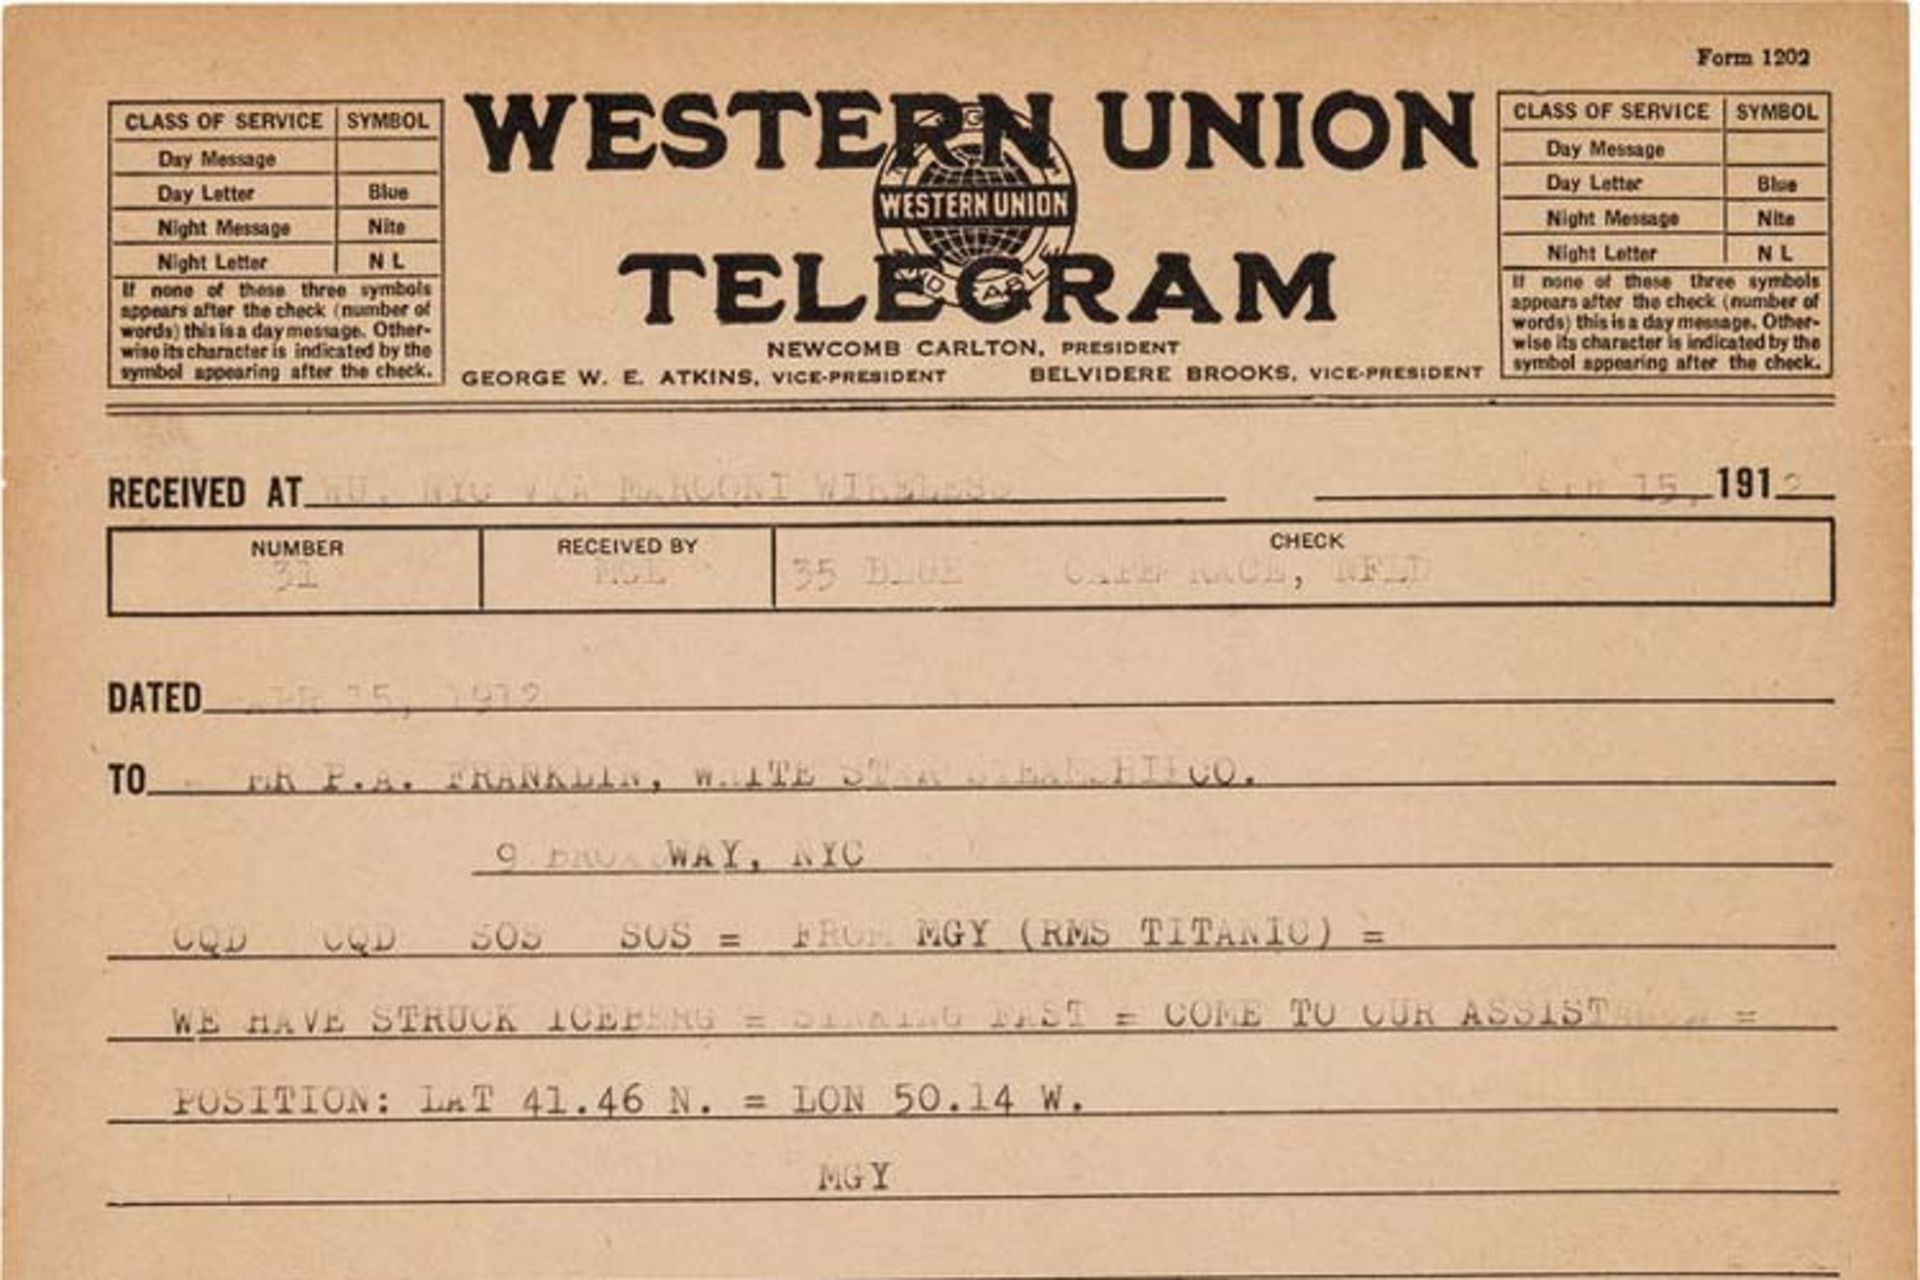 Form 1202
CLASS OF SERVICE SYMBOL
Day Message
Day Letter Blue
Night Message Nite
Night Letter N L
If none of these three symbols
appears after the check (number of
words) this is a day message. Other-
wise its character is indicated by the
symbol appearing after the check.
WESTERN UNION
WESTERN UNION
TELEGRAM
NEWCOMB CARLTON, PRESIDENT
GEORGE W. E. ATKINS, VICE-PRESIDENT BELVIDERE BROOKS, VICE-PRESIDENT
CLASS OF SERVICE SYMBOL
Day Message
Day Letter Blue
Night Message Nite
Night Letter N L
If none of these three symbols
appears after the check (number of
words) this is a day message. Other-
wise its character is indicated by the
symbol appearing after the check.
RECEIVED AT WU. NYC VIA MARCONI WIRELESS APR 15, 1912
NUMBER RECEIVED BY CHECK
31 35 BLUE CAPE RACE, NFLD
DATED APR 15, 1912
TO MR P.A. FRANKLIN, WHITE STAR STEAMSHIP CO.
9 BROADWAY, NYC
CQD CQD SOS SOS = FROM MGY (RMS TITANIC) =
WE HAVE STRUCK ICEBERG = SINKING FAST = COME TO OUR ASSISTANCE =
POSITION: LAT 41.46 N. = LON 50.14 W.
MGY